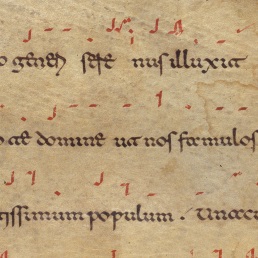 o generi sere nus illuxit
o te domine ut nos famulos
tissimum populum . Una